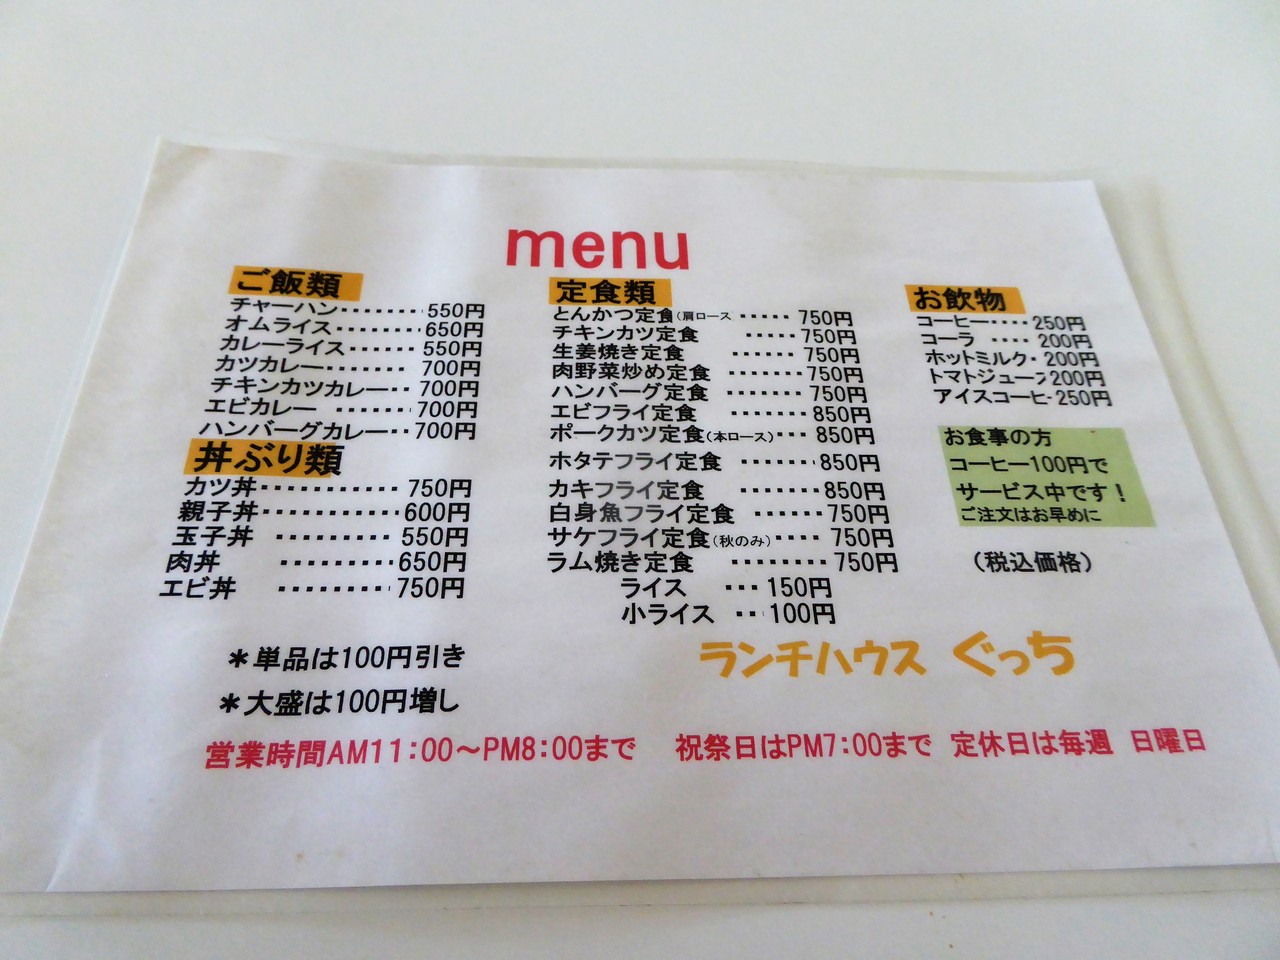 menu
ご飯類
チャーハン・・・・・・・550円
オムライス・・・・・・・650円
カレーライス・・・・・・550円
カツカレー・・・・・・・700円
チキンカツカレー・・700円
エビカレー ・・・・・・700円
ハンバーグカレー・・700円
丼ぶり類
カツ丼・・・・・・・・・・・750円
親子丼・・・・・・・・・・・600円
玉子丼 ・・・・・・・・・550円
肉丼 ・・・・・・・・・650円
エビ丼 ・・・・・・・・・750円
＊単品は100円引き
＊大盛は100円増し
定食類
とんかつ定食(肩ロース ・・・・・ 750円
チキンカツ定食 ・・・・・750円
生姜焼き定食 ・・・・・・750円
肉野菜炒め定食 ・・・・・・750円
ハンバーグ定食 ・・・・・・750円
エビフライ定食 ・・・・・・850円
ポークカツ定食(本ロース)・・・850円
ホタテフライ定食 ・・・・・・850円
カキフライ定食 ・・・・・・850円
白身魚フライ定食 ・・・・・・750円
サケフライ定食(秋のみ)・・・・750円
ラム焼き定食 ・・・・・・・・750円
ライス ・・・150円
小ライス ・・・100円
お飲物
コーヒー・・・・250円
コーラ ・・・・200円
ホットミルク・200円
トマトジュース200円
アイスコーヒ-250円
お食事の方
コーヒー100円で
サービス中です！
ご注文はお早めに
（税込価格）
ランチハウス ぐっち
営業時間AM11：00〜PM8：00まで 祝祭日はPM7：00まで 定休日は毎週 日曜日